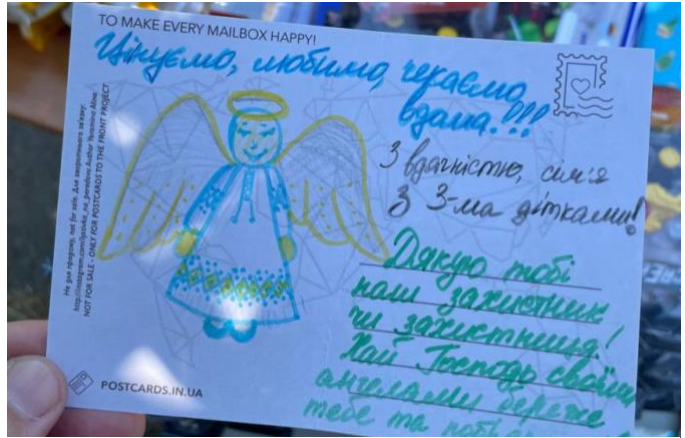 TO MAKE EVERY MAILBOX HAPPY!
Цінуємо, любимо, чекаємо
вдома!!!
З вдячністю, сім'я
з 3-ма дітками!
Дякую тобі
наш захистник
чи захистниця!
Хай Господь своїми
ангелами береже
тебе та
Не для продажу, not for sale. Для зворотнього зв'язку:
NOT FOR SALE - ONLY FOR POSTCARDS TO THE FRONT PROJECT
POSTCARDS.IN.UA